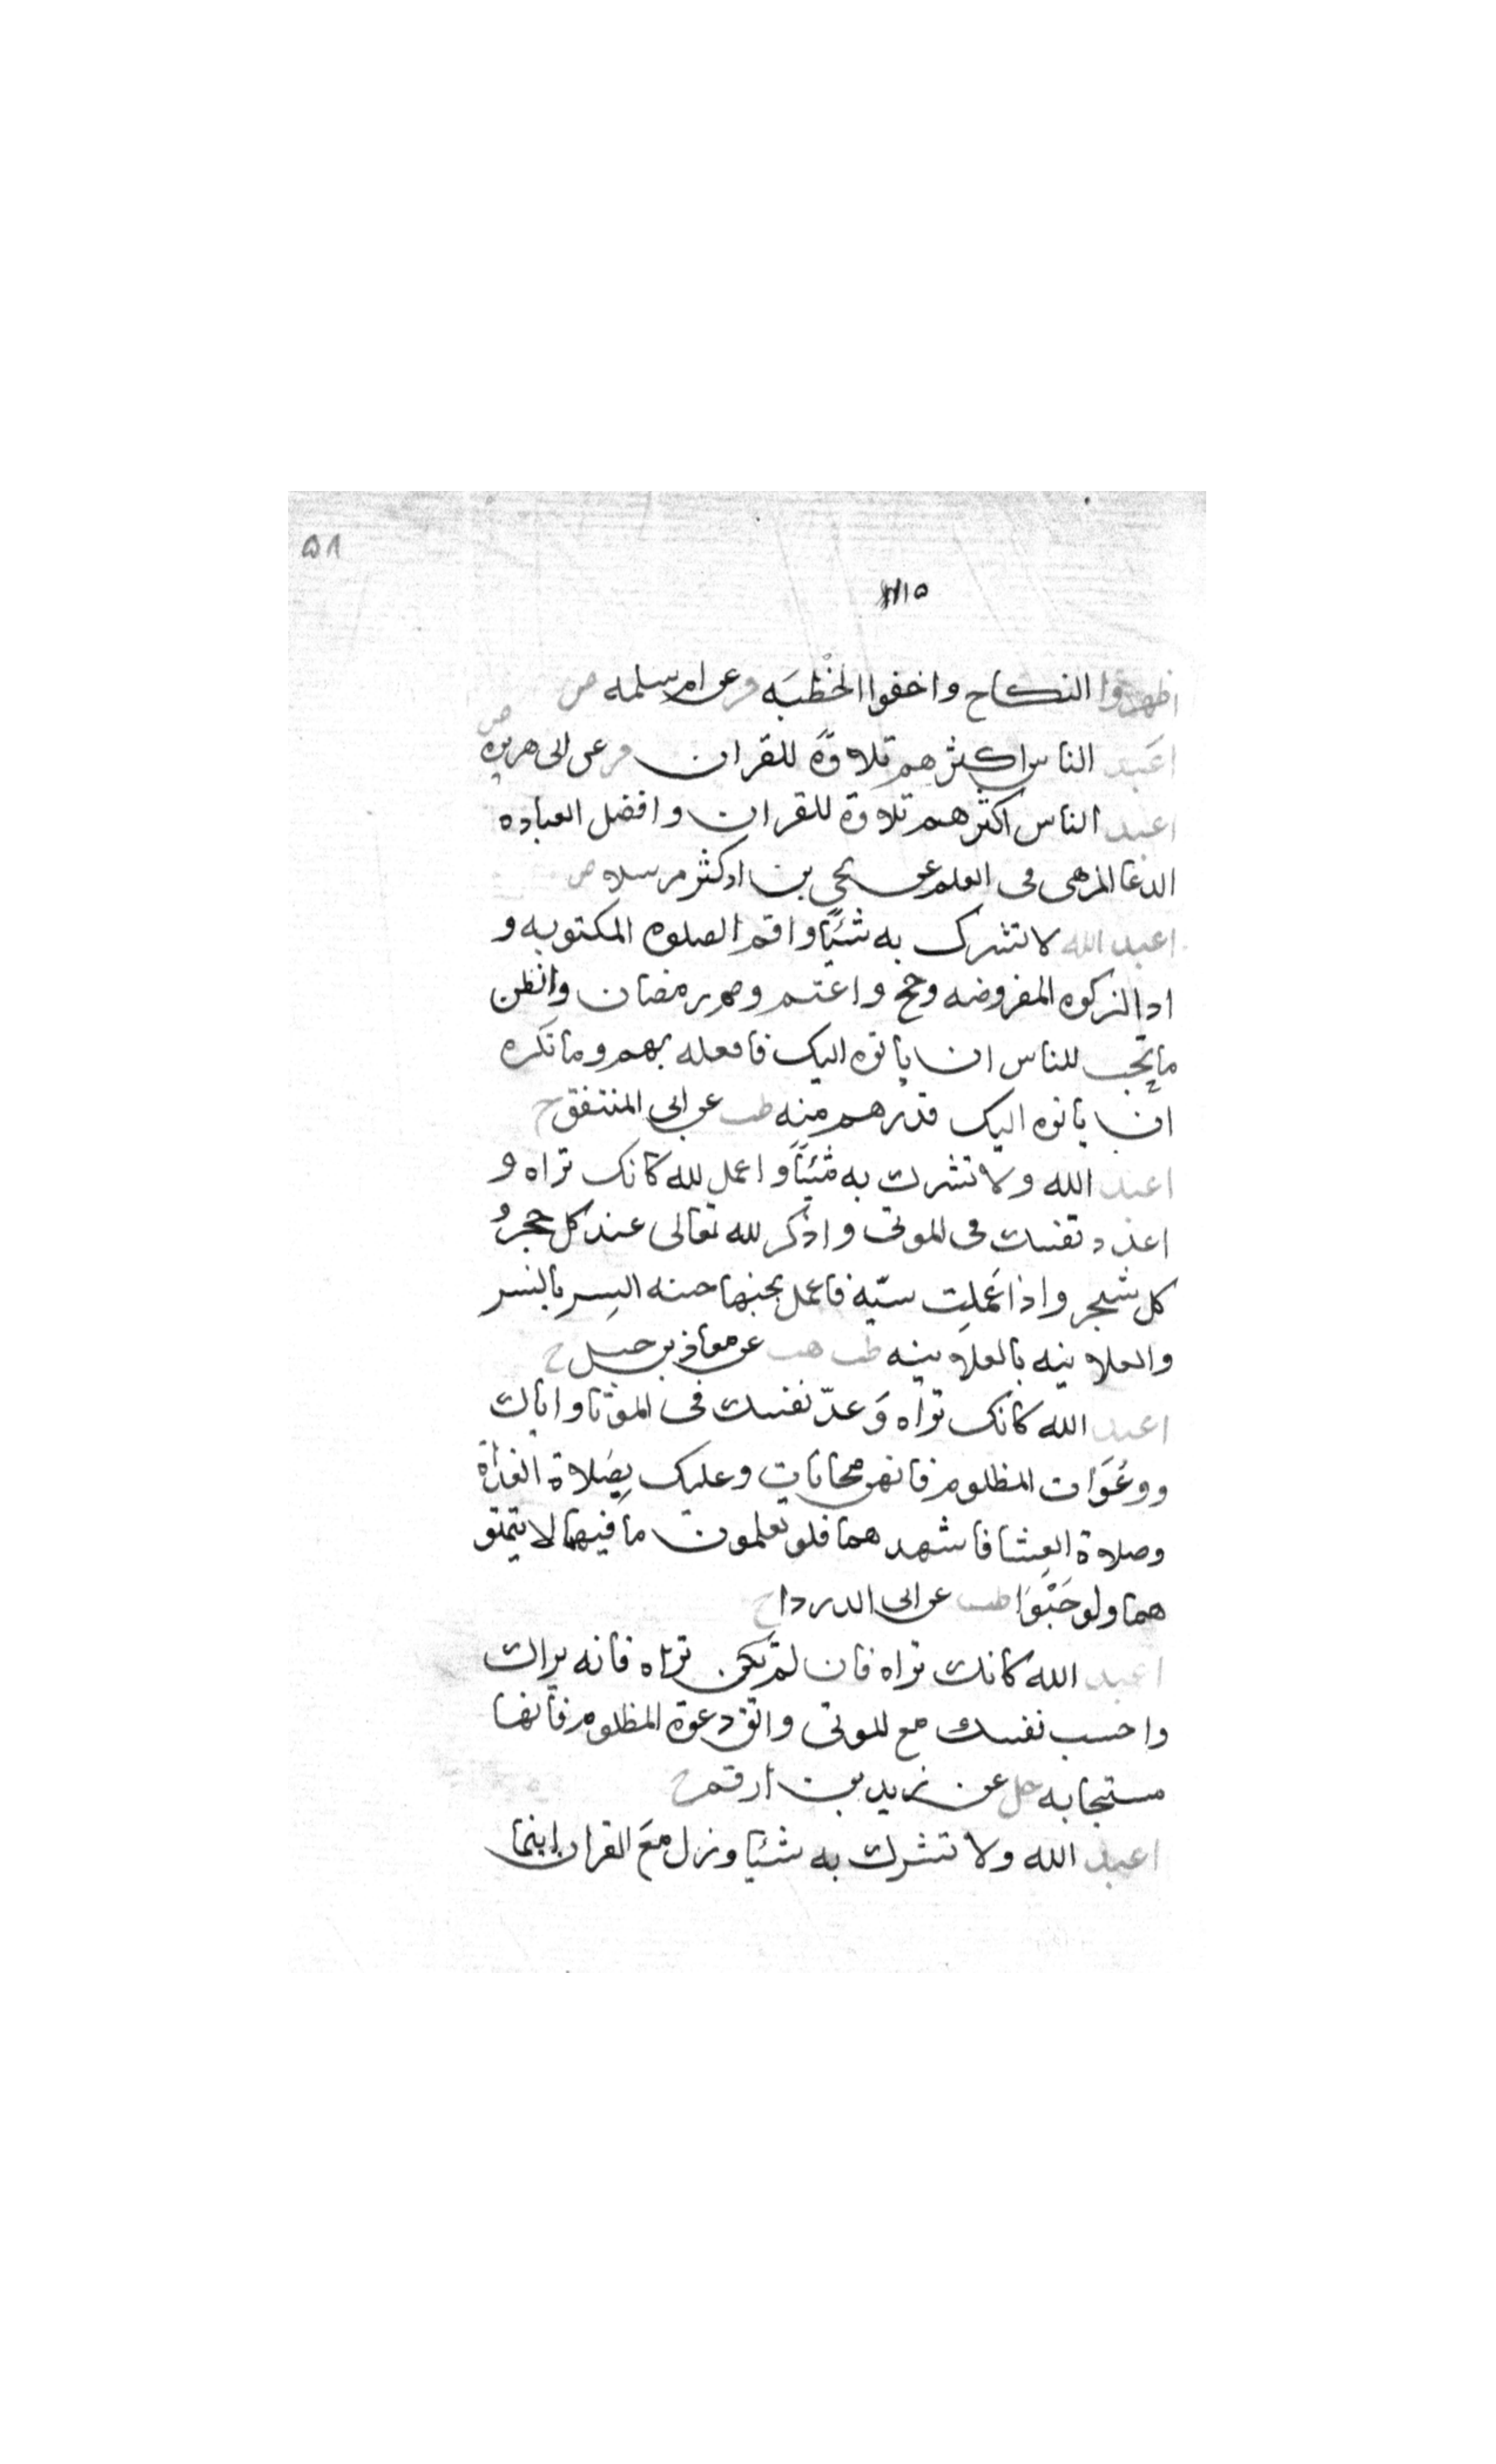 ٥٨
١١٥
اظهروا النكاح واخفوا الخطبَه فر عن ام سلمه ض
اعبد الناس اكثرهم تلاوةً للقران فر عن ابى هريره ض
اعبد الناس اكثرهم تلاوة للقران وافضل العباده
الدعا المرهبى فى العلم عن يحيى بن ابى كثير مرسلا ض
اعبد الله لا تشرك به شئيًا واقم الصلوه المكتوبه و
ادا الزكوه المفروضه وحج واعتمر وصم رمضان وانظر
ما تحب للناس ان ياتوه اليك فافعله بهم وما تكره
ان ياتوه اليك فذرهم منه طب عن ابى المنتفق ح
اعبد الله ولا تشرك به شئيًا واعمل لله كانك تراه و
اعدد نفسك فى الموتى واذكر لله تعالى عند كل حجر و
كل شجر واذا عَملت سيّه فاعمل بجنبها حسنه السر بالسر
والعلانيه بالعلانيه طب هب عن معاذ بن جبل ح
اعبد الله كانك تراه وَعدّ نفسك فى الموتا واياك
ودعَوَات المظلوم فانهن مجابات وعليك بصَلاة الغداة
وصلاة العشا فاشهدهما فلو تعلمون ما فيهما لاتيتمو
هما ولو حَبْوَا طب عن ابى الدردا ح
اعبد الله كانك تراه فان لم تكن تراه فانه يراك
واحسب نفسك مع الموتى واتق دعوة المظلوم فانها
مستجابه حل عن زيد بن ارقم ح
اعبد الله ولا تشرك به شئيا وزل معَ القران اينما